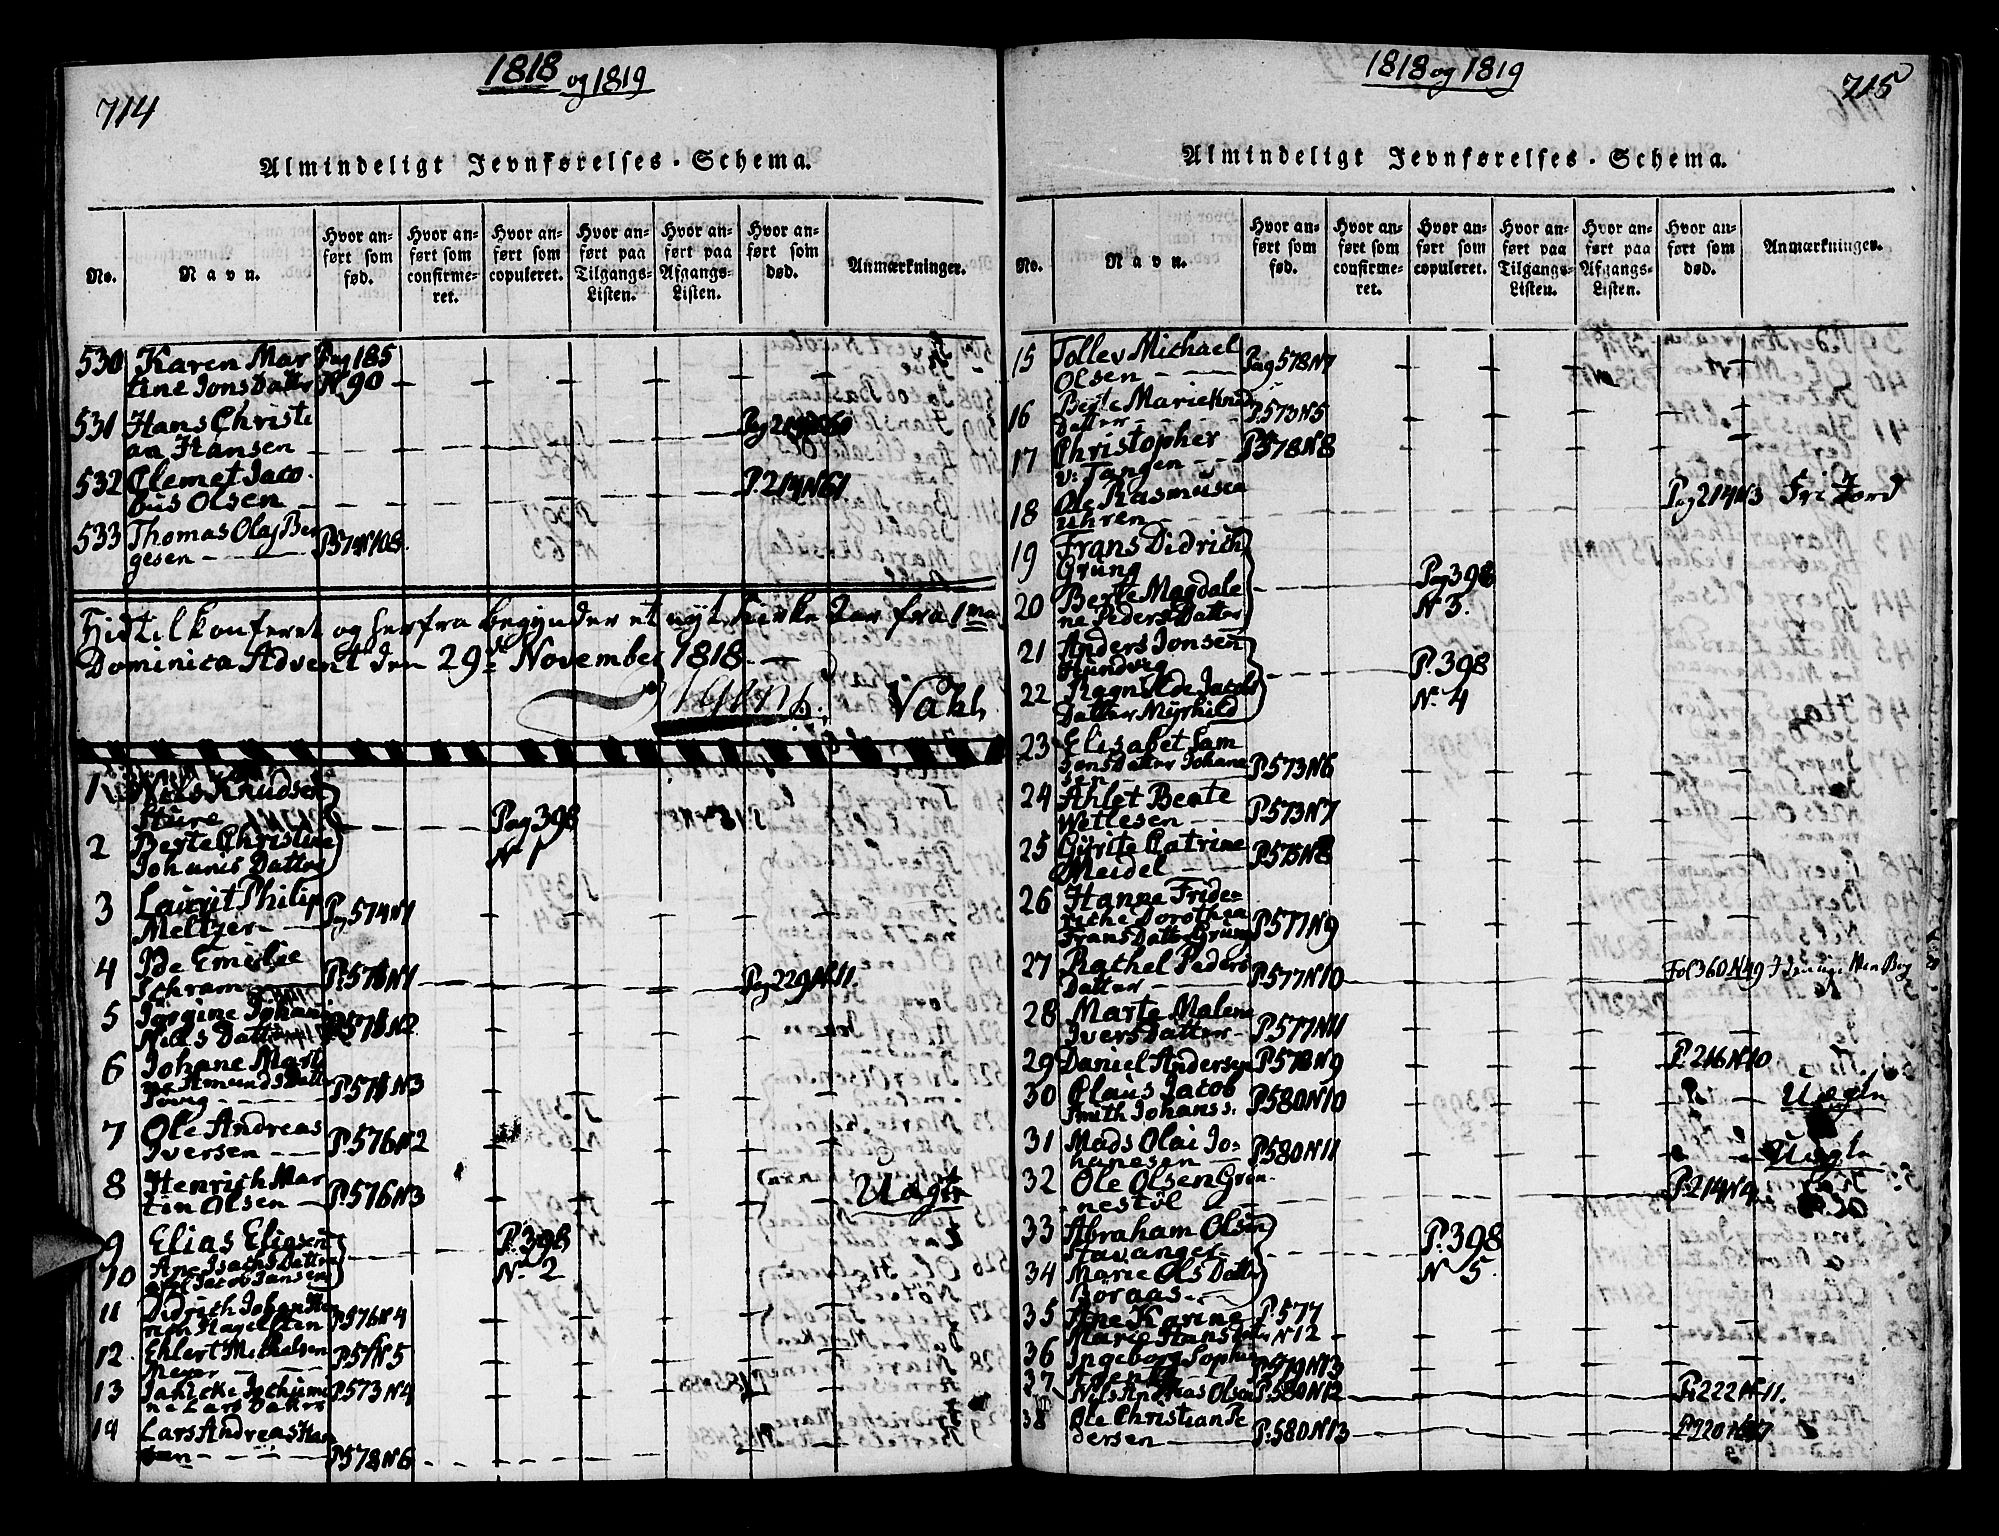 714
1818
og 1819
Almindeligt Jevnførelses-Schema.
No.
Navn.
Hvor anført som fød.
Hvor anført som confirmeret.
Hvor anført som copuleret.
Hvor anført paa Tilgangs-Listen.
Hvor anført paa Afgangs-Listen.
Hvor anført som død.
Anmærkninger.
530 Karen Mar Pag 185
tine Jons Datter N. 90
531 Hans Christi
an Hansen
532 Clemet Jaco
bus Olsen P. 214 N 61
533 Thomas Olaj Ber
gesen P574N108
Hidtil konferet og herfra begynder et nyt Kirke Aar fra 1ma
Dominica Advent den 29d November 1818
Vahl
1 Niels Knudsen
Sture Pag 398
2 Berte Christine N. 1
Johanis Datter
3 Laurit Philip
Meltzer Pg 574N1
4 Ide Emilie
Schram P. 571N1 Pag 229N.11.
5 Jørgine Johan
Niels Datter P571N2
6 Johane Mart
ne Amunds Datt P571N3
7 Ole Andreas
Iversen P. 576N2
8 Henrich Mar
tin Olsen P. 576N3 Uægte
9 Elias Eliasen P. 398
10 Ane Isachs Datter N. 2
Jacob Jansen
11 Didrich Johan Hen
rich Hagelsten P576N4
12 Ehlert Mikelsen
Meyer P571N5
13 Jahicke Jochume
ne Lars Datter P. 573N4
14 Lars Andreas Han
sen P578N6
1818 og 1819
715
Almindeligt Jevnførelses-Schema.
No.
Navn.
Hvor anført som fød.
Hvor anført som confirmeret.
Hvor anført som copuleret.
Hvor anført paa Tilgangs-Listen.
Hvor anført paa Afgangs-Listen.
Hvor anført som død.
Anmærkninger.
15 Tollev Michael
Olsen Pag 578N7
16 Berte Marie Knuds
Datter P. 573N5
17 Christopher P578N8
v: Tangen
18 Ole Rasmusen
Uhren Pag 214N3 Fri Jord
19 Frans Didrich
Grüng Pag 398
20 Berte Magdale N 3.
ne Peders Datter
21 Anders Jonsen
Hundvig P. 398
22 Ragnilde Jacobs N. 4
Datter Myrhild
23 Elisabet Sam
Jons Datter Johane
sen P573N6
24 Ahlet Beate
Wetlesen P573N7
25 Gürite Catrine
Meidel P575N8
26 Hanne Frider
riche Dorothea
Frans Datter Grüng P577N9
27 Rathel Peders
Datter P577N10 Fol 360 N 49
28 Marte Malene
Ivers Datter P577N11
29 Daniel Andersen P578N9 P 216N10
30 Claus Jacob
Smith Johans s. P580N10 Uægte
31 Mads Olai Jo-
hanesen P580N11 Uægte
32 Ole Olsen Grön
nestöl P214N4
33 Abraham Olsen
Stavanger P. 398
34 Marie Ols Datter N 5.
Boraas
35 Ane Karine P. 577
Marie Hans Datter N 12
36 Ingeborg Sophie
P579N13
37 Nils Andreas Olsen P580N12 P. 222 N. 11.
38 Ole Christian Pe
dersen P. 580N13